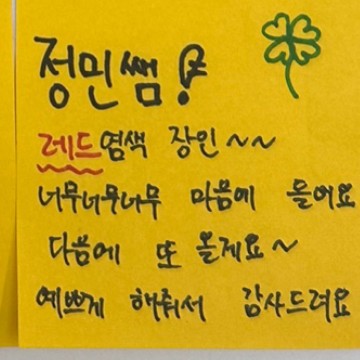 정민쌤!
레드염색 장인~~
너무너무너무 마음에 들어요
다음에 또 올게요~
예쁘게 해줘서 감사드려요